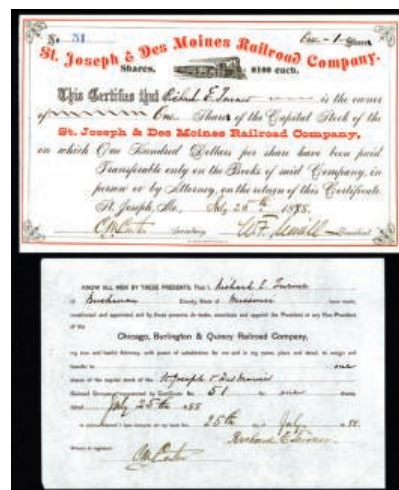 No 51 One - 1 - Shares
St. Joseph & Des Moines Railroad Company.
Shares, $100 each.
This Certifies that Richard E. Turner is the owner
of One Shares of the Capital Stock of the
St. Joseph & Des Moines Railroad Company,
on which One Hundred Dollars per share have been paid
Transferable only on the Books of said Company, in
person or by Attorney, on the return of this Certificate.
St. Joseph, Mo., July 25th 1888.
C.M. Carter Secretary W.F. Merrill President
KNOW ALL MEN BY THESE PRESENTS, That I, Richard E. Turner
of Buchanan County, State of Missouri have made,
constituted and appointed and by these presents do make, constitute and appoint the President or any Vice-President
of the
Chicago, Burlington & Quincy Railroad Company,
my true and lawful Attorney, with power of substitution for me and in my name, place and stead, to assign and
transfer to one
shares of the capital stock of the St Joseph & Des Moines
Railroad Company, represented by Certificate No. 51 for one shares,
dated July 25th 88
25th day of July 88.
Richard E Turner
Witness to signature:
C.M. Carter